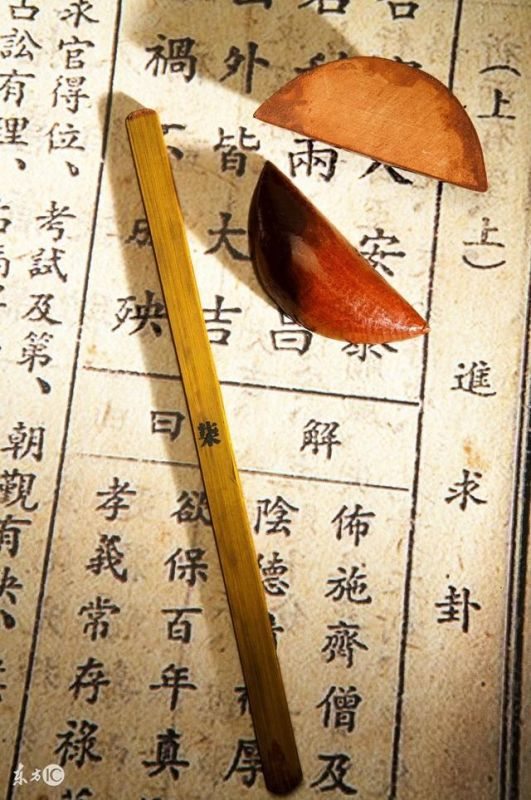 （上上）進求卦
安泰
兩昌
外皆大吉
禍不成殃
解曰
佈施齊僧及
陰德厚
欲保百年真
孝義常存祿
求官得位、考試及第、朝觀有缺、
訟有理、
柒
东方IC